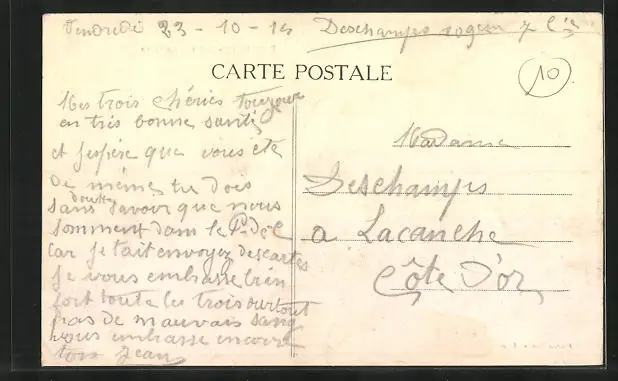 Vendredi 23-10-14 Deschamps 7 Cie
CARTE POSTALE
10
Mes trois chéries toujour
en très bonne santé
et j'espère que vous ete
de même tu dois
sans doute savoir que nous
somment dans le P-de-C
car je tait envoyez des cartes
je vous embrasse bien
fort toute les trois surtout
pas de mauvais sang
vous embrasse encore
ton Jean
Madame
Deschamps
a Lacanche
Côte d'Or